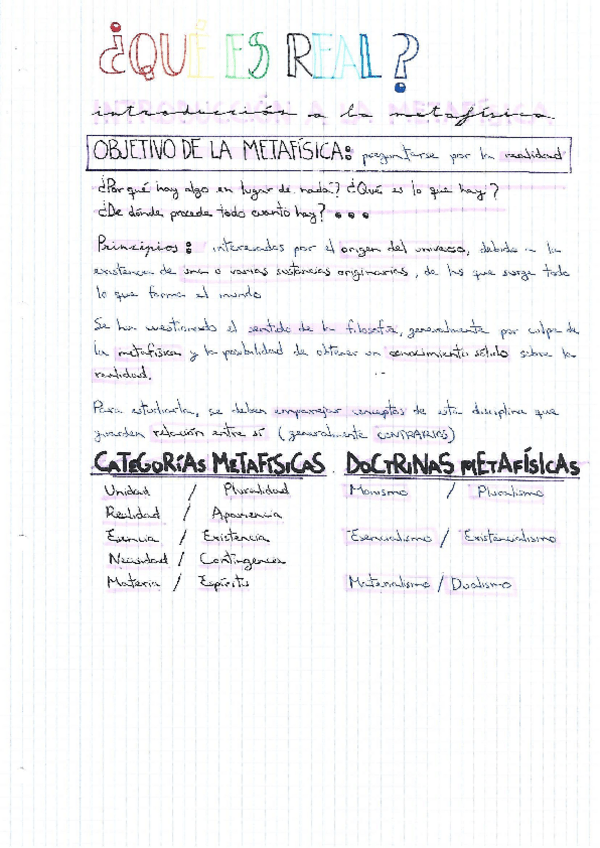 ¿QUÉ ES REAL?
introducción a la metafísica
OBJETIVO DE LA METAFÍSICA: preguntarse por la realidad
¿Por qué hay algo en lugar de nada? ¿Qué es lo que hay?
¿De dónde procede todo cuanto hay? ...
Principios: interesados por el origen del universo, debido a la
existencia de una o varias sustancias originarias, de las que surge todo
lo que forma el mundo
Se ha cuestionado el sentido de la filosofía, generalmente por culpa de
la metafísica y la posibilidad de obtener un conocimiento sólido sobre la
realidad.
Para estudiarla, se deben emparejar conceptos de esta disciplina que
guarden relación entre sí (generalmente CONTRARIOS)
CATEGORÍAS METAFÍSICAS DOCTRINAS METAFÍSICAS
Unidad / Pluralidad Monismo / Pluralismo
Realidad / Apariencia
Esencia / Existencia Esencialismo / Existencialismo
Necesidad / Contingencia
Materia / Espíritu Materialismo / Dualismo